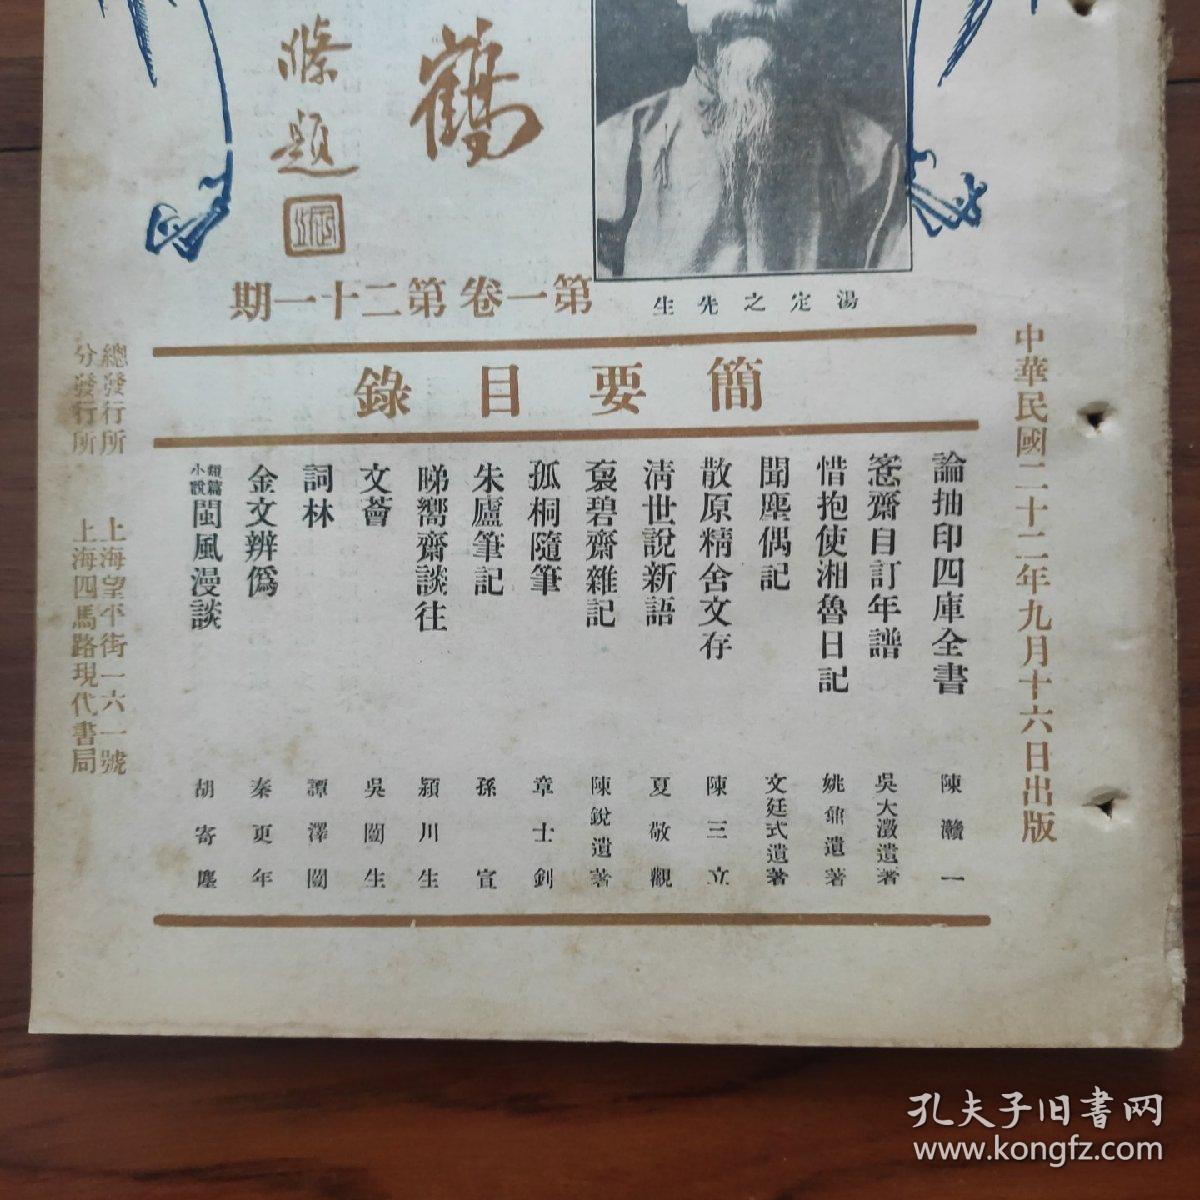 鶴
題
湯定之先生
第一卷第二十一期
簡要目錄
中華民國二十二年九月十六日出版
論抽印四庫全書 陳灨一
愙齋自訂年譜 吳大澂遺著
惜抱使湘魯日記 姚鼐遺著
聞塵偶記 文廷式遺著
散原精舍文存 陳三立
清世說新語 夏敬觀
袌碧齋雜記 陳銳遺著
孤桐隨筆 章士釗
朱廬筆記 孫宣
睇嚮齋談往 潁川生
文薈 吳闓生
詞林 譚澤闓
金文辨僞 秦更年
短篇小說 閩風漫談 胡寄塵
總發行所 上海望平街一六一號
分發行所 上海四馬路現代書局
孔夫子旧书网
www.kongfz.com